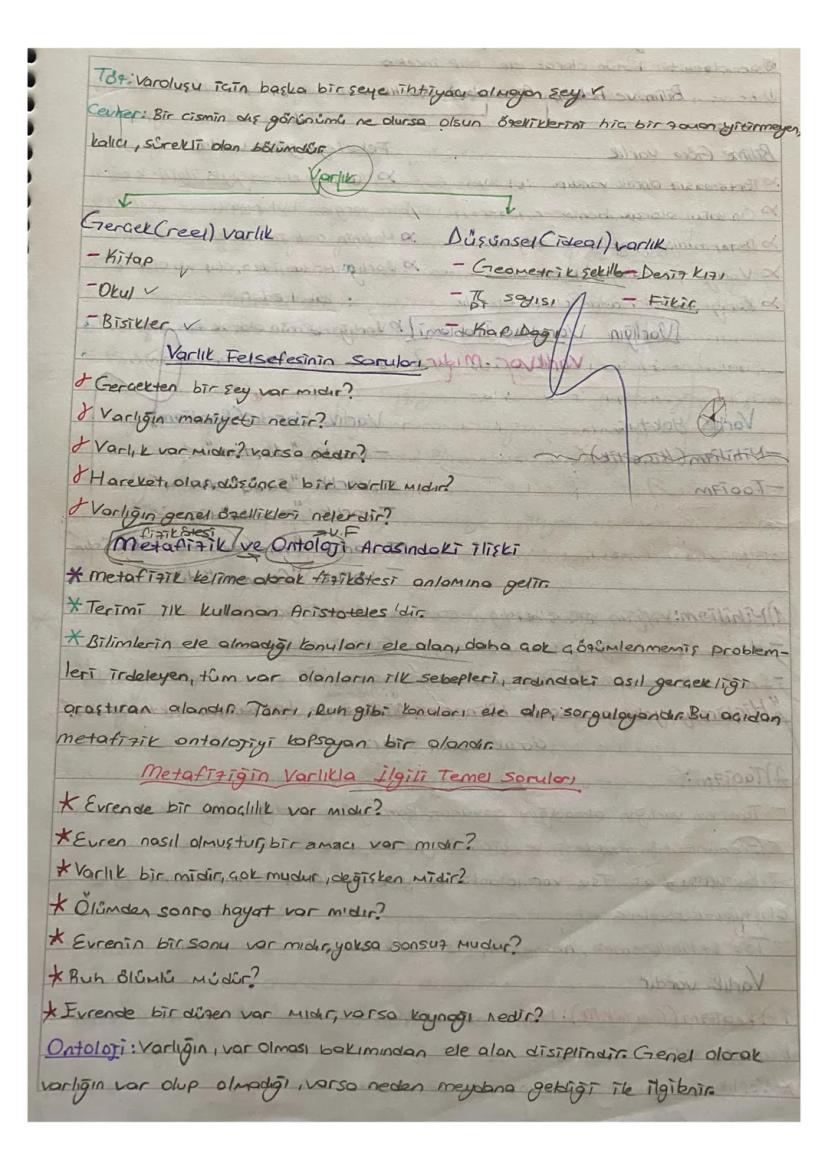 Töz: Varoluşu için başka bir şeye ihtiyacı olmayan şey.
Cevher: Bir cismin dış görünümü ne olursa olsun özelliklerini hiç bir zaman yitirmeyen,
kalıcı, sürekli olan bölümdür.
Varlık
Gerçek (reel) varlık
Düşünsel (ideal) varlık
- Kitap
- Geometrik şekiller - Deniz Kızı
- Okul ✓
- π sayısı - Fikir
- Bisikler ✓
- Kaf Dağı
Varlık Felsefesinin Soruları
Gerçekten bir şey var mıdır?
Varlığın mahiyeti nedir?
Varlık var mıdır? varsa nedir?
Hareket, olaş, düşünce bir varlık mıdır?
Varlığın genel özellikleri nelerdir?
fizikötesi V.F
Metafizik ve Ontoloji Arasındaki ilişki
* metafizik kelime olarak fizikötesi anlamına gelir.
* Terimi ilk kullanan Aristoteles'dir.
* Bilimlerin ele almadığı konuları ele alan, daha çok çözümlenmemiş problem-
leri irdeleyen, tüm var olanların ilk sebepleri, ardındaki asıl gerçekliği
araştıran alandır. Tanrı, Ruh gibi konuları ele alıp, sorgulayandır. Bu açıdan
metafizik ontolojiyi kapsayan bir alandır.
Metafiziğin Varlıkla İlgili Temel Soruları
* Evrende bir amaçlılık var mıdır?
* Evren nasıl olmuştur, bir amacı var mıdır?
* Varlık bir midir, çok mudur, değişken midir?
* Ölümden sonra hayat var mıdır?
* Evrenin bir sonu var mıdır, yoksa sonsuz mudur?
* Ruh ölümlü müdür?
* Evrende bir düzen var mıdır, varsa kaynağı nedir?
Ontoloji: Varlığın, var olması bakımından ele alan disiplindir. Genel olarak
varlığın var olup olmadığı, varsa neden meydana geldiği ile ilgilenir.